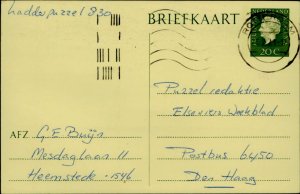 Ladderpuzzel 830
BRIEFKAART
NEDERLAND
20c
Puzzel redaktie
Elseviers Weekblad
Postbus 6450
Den Haag
AFZ G E Bruijn
Mesdaglaan 11
Heemstede - 1546